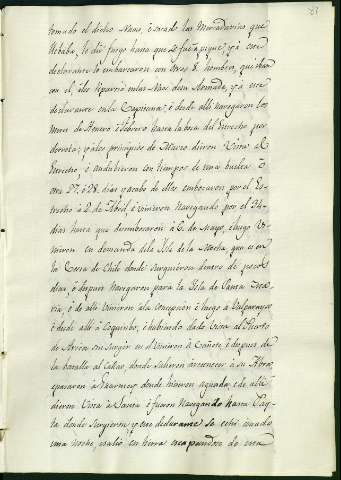 tomado el dicho Navio é sacado las Mercadurias que
llebaba, le dió fuego hasta que se fué a pique; y á este
declarante le embarcaron con otros 8 hombres, que iban
con el, é los repartió en las Naos de su Armada, y á este
declarante en la Capitana; é desde alli navegaron los
meses de Henero é Febrero hasta la boca del Estrecho por
derrota; y á los principios de Marzo dieron vista al
Estrecho, é andubieron con tiempos de una buelta é
otra 27, ó 28. dias y acabo de ellos, embocaron por el Es-
trecho á 2. de Abril é vinieron navegando por el 34
dias hasta que desembocaron á 6. de Mayo, é luego vi-
nieron en demanda de la Isla de la Mocha, que es en
la Costa de Chile donde surgieron dentro de pocos
dias, é despues navegaron para la Isla de Santa Ma-
ria, é de alli vinieron a la Concepcion é luego a Valparayso
é desde alli á Coquinbo, é habiendo dado vista al Puerto
de Arica sin surgir en el vinieron á Cañete, é despues de
la batalla al Callao, donde salieron á reconocer á su Flota,
é pararon á Guarmey donde hicieron aguada, é de alli
dieron vista á Santa é fueron navegando hasta Pay-
ta donde surgieron, y este declarante se echó á nado
una noche, é salió en tierra escapandose de esta